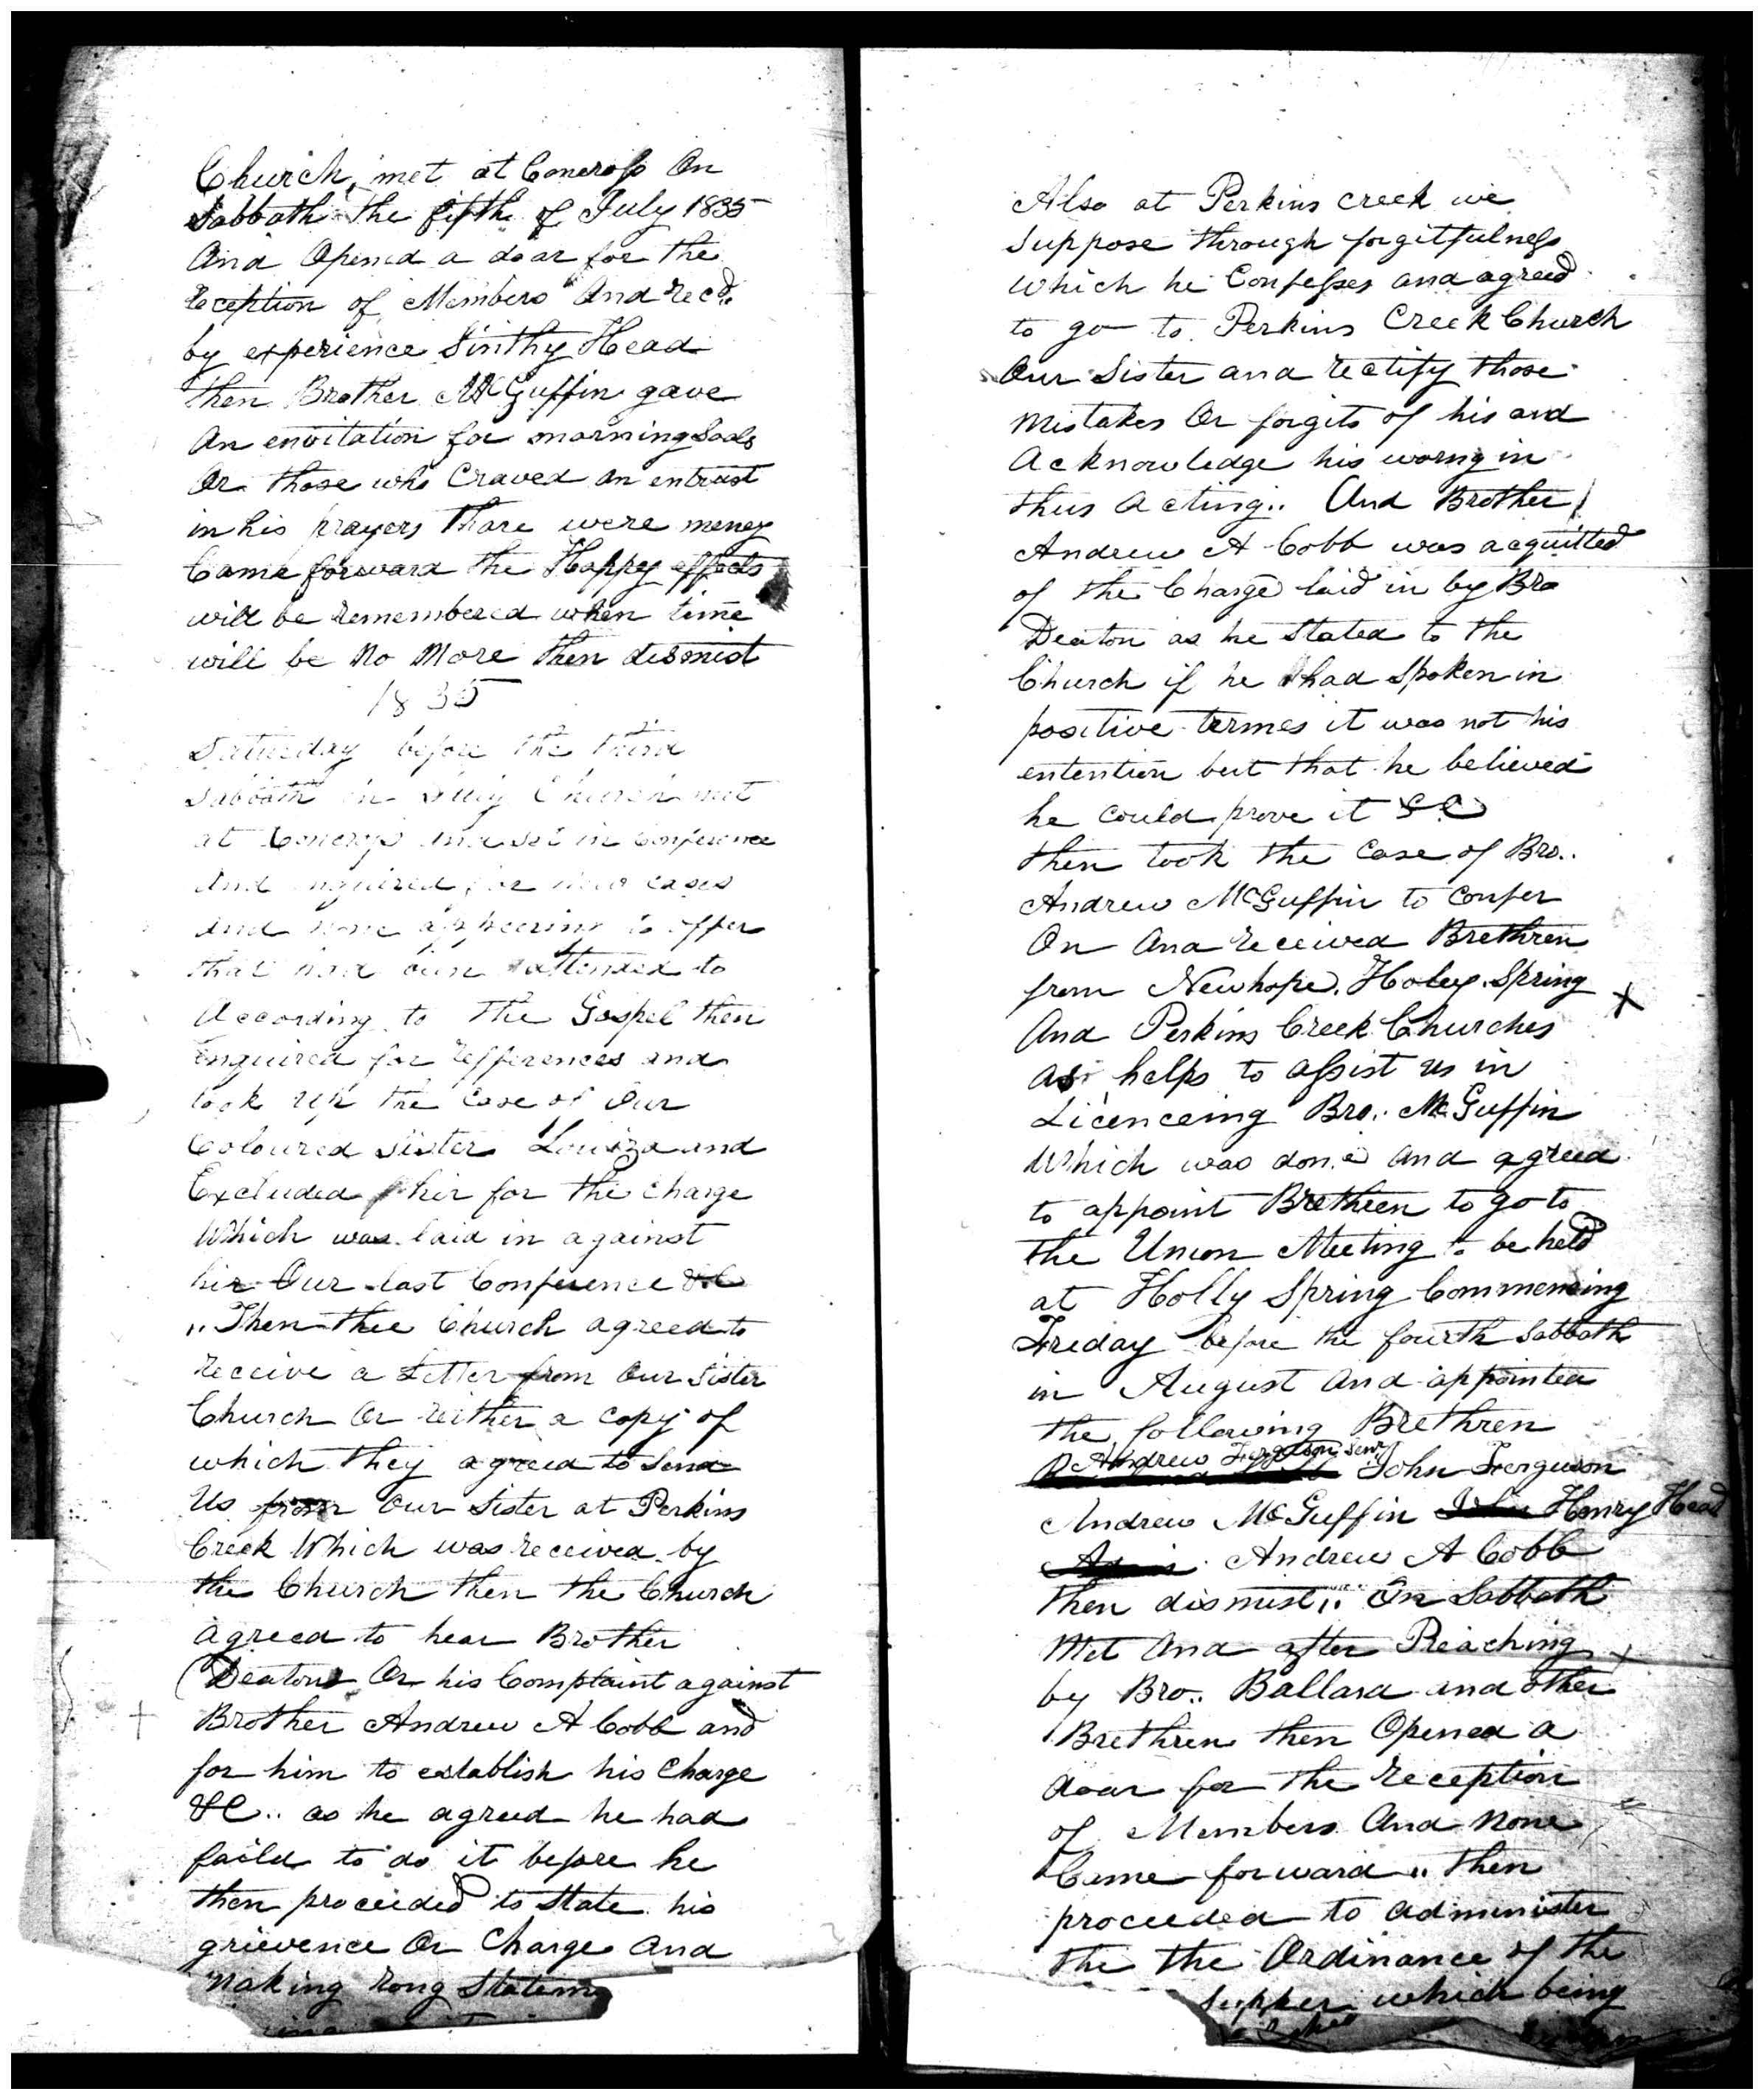 Church, met at Concross On
Sabbath The fifth of July 1835
And Opened a doar for the
Reception of Members And Recd..
by experience Sinthy Head
then Brother McGuffin gave
An envitation for morning Sools
Or those who Craved an entrust
in his prayers Thare were meney
Came forward the Happy effects
will be Remembered when time
will be No More then dismist
1835
Saturday before the third
Sabbath in July Church met
at Concross and set in Conference
And inquired for new cases
And none appeering to offer
that had bin attended to
According to The Gospel then
enquired for Refferences and
took up the Case of Our
Coloured Sister Louiza and
Excluded hir for the Charge
Which was laid in against
hir Our last Conference &C
,, Then thee Church agreed to
Receive a Letter from Our Sister
Church Or reither a copy of
which they agreed to Send
Us from Our Sister at Perkins
Creek Which was Received by
the Church then the Church
agreed to hear Brother
Deaton Or his Complaint against
Brother Andrew A Cobb and
for him to establish his Charge
&C.. as he agreed he had
faild to do it before he
then proceeded to State his
grievence Or Charge and
making Rong Statem
Also at Perkins creek we
Suppose through forgitfulness
Which he Confesses and agreed
to go to Perkins Creek Church
Our Sister and Rectify those
Mistakes Or forgits of his and
Acknowledge his worng in
thus acting.. And Brother
Andrew A Cobb was acquitted
of the Charge laid in by Bro
Deaton as he Stated to the
Church if he had Spoken in
positive termes it was not his
entention but that he believed
he could prove it &C
then took the Case of Bro..
Andrew McGuffin to Confer
On And received Brethren
from Newhope, Holey Spring
And Perkins Creek Churches
as helps to assist us in
Licenceing Bro.. McGuffin
Which was done and agreed
to appoint Bretheen to go to
the Union Meeting to be held
at Holly Spring Commencing
Friday before the fourth Sabbath
in August and appointed
the following Brethren
Andrew Ferguson Senr John Ferguson
Andrew McGuffin Henry Head
Andrew A Cobb
then dismist,, On Sabbath
Met And after Preaching
by Bro.. Ballard and other
Brethren then Opened a
doar for the Reception
of Members And None
Came forward ,, then
proceeded to administer
the the Ordinance of the
Supper which being